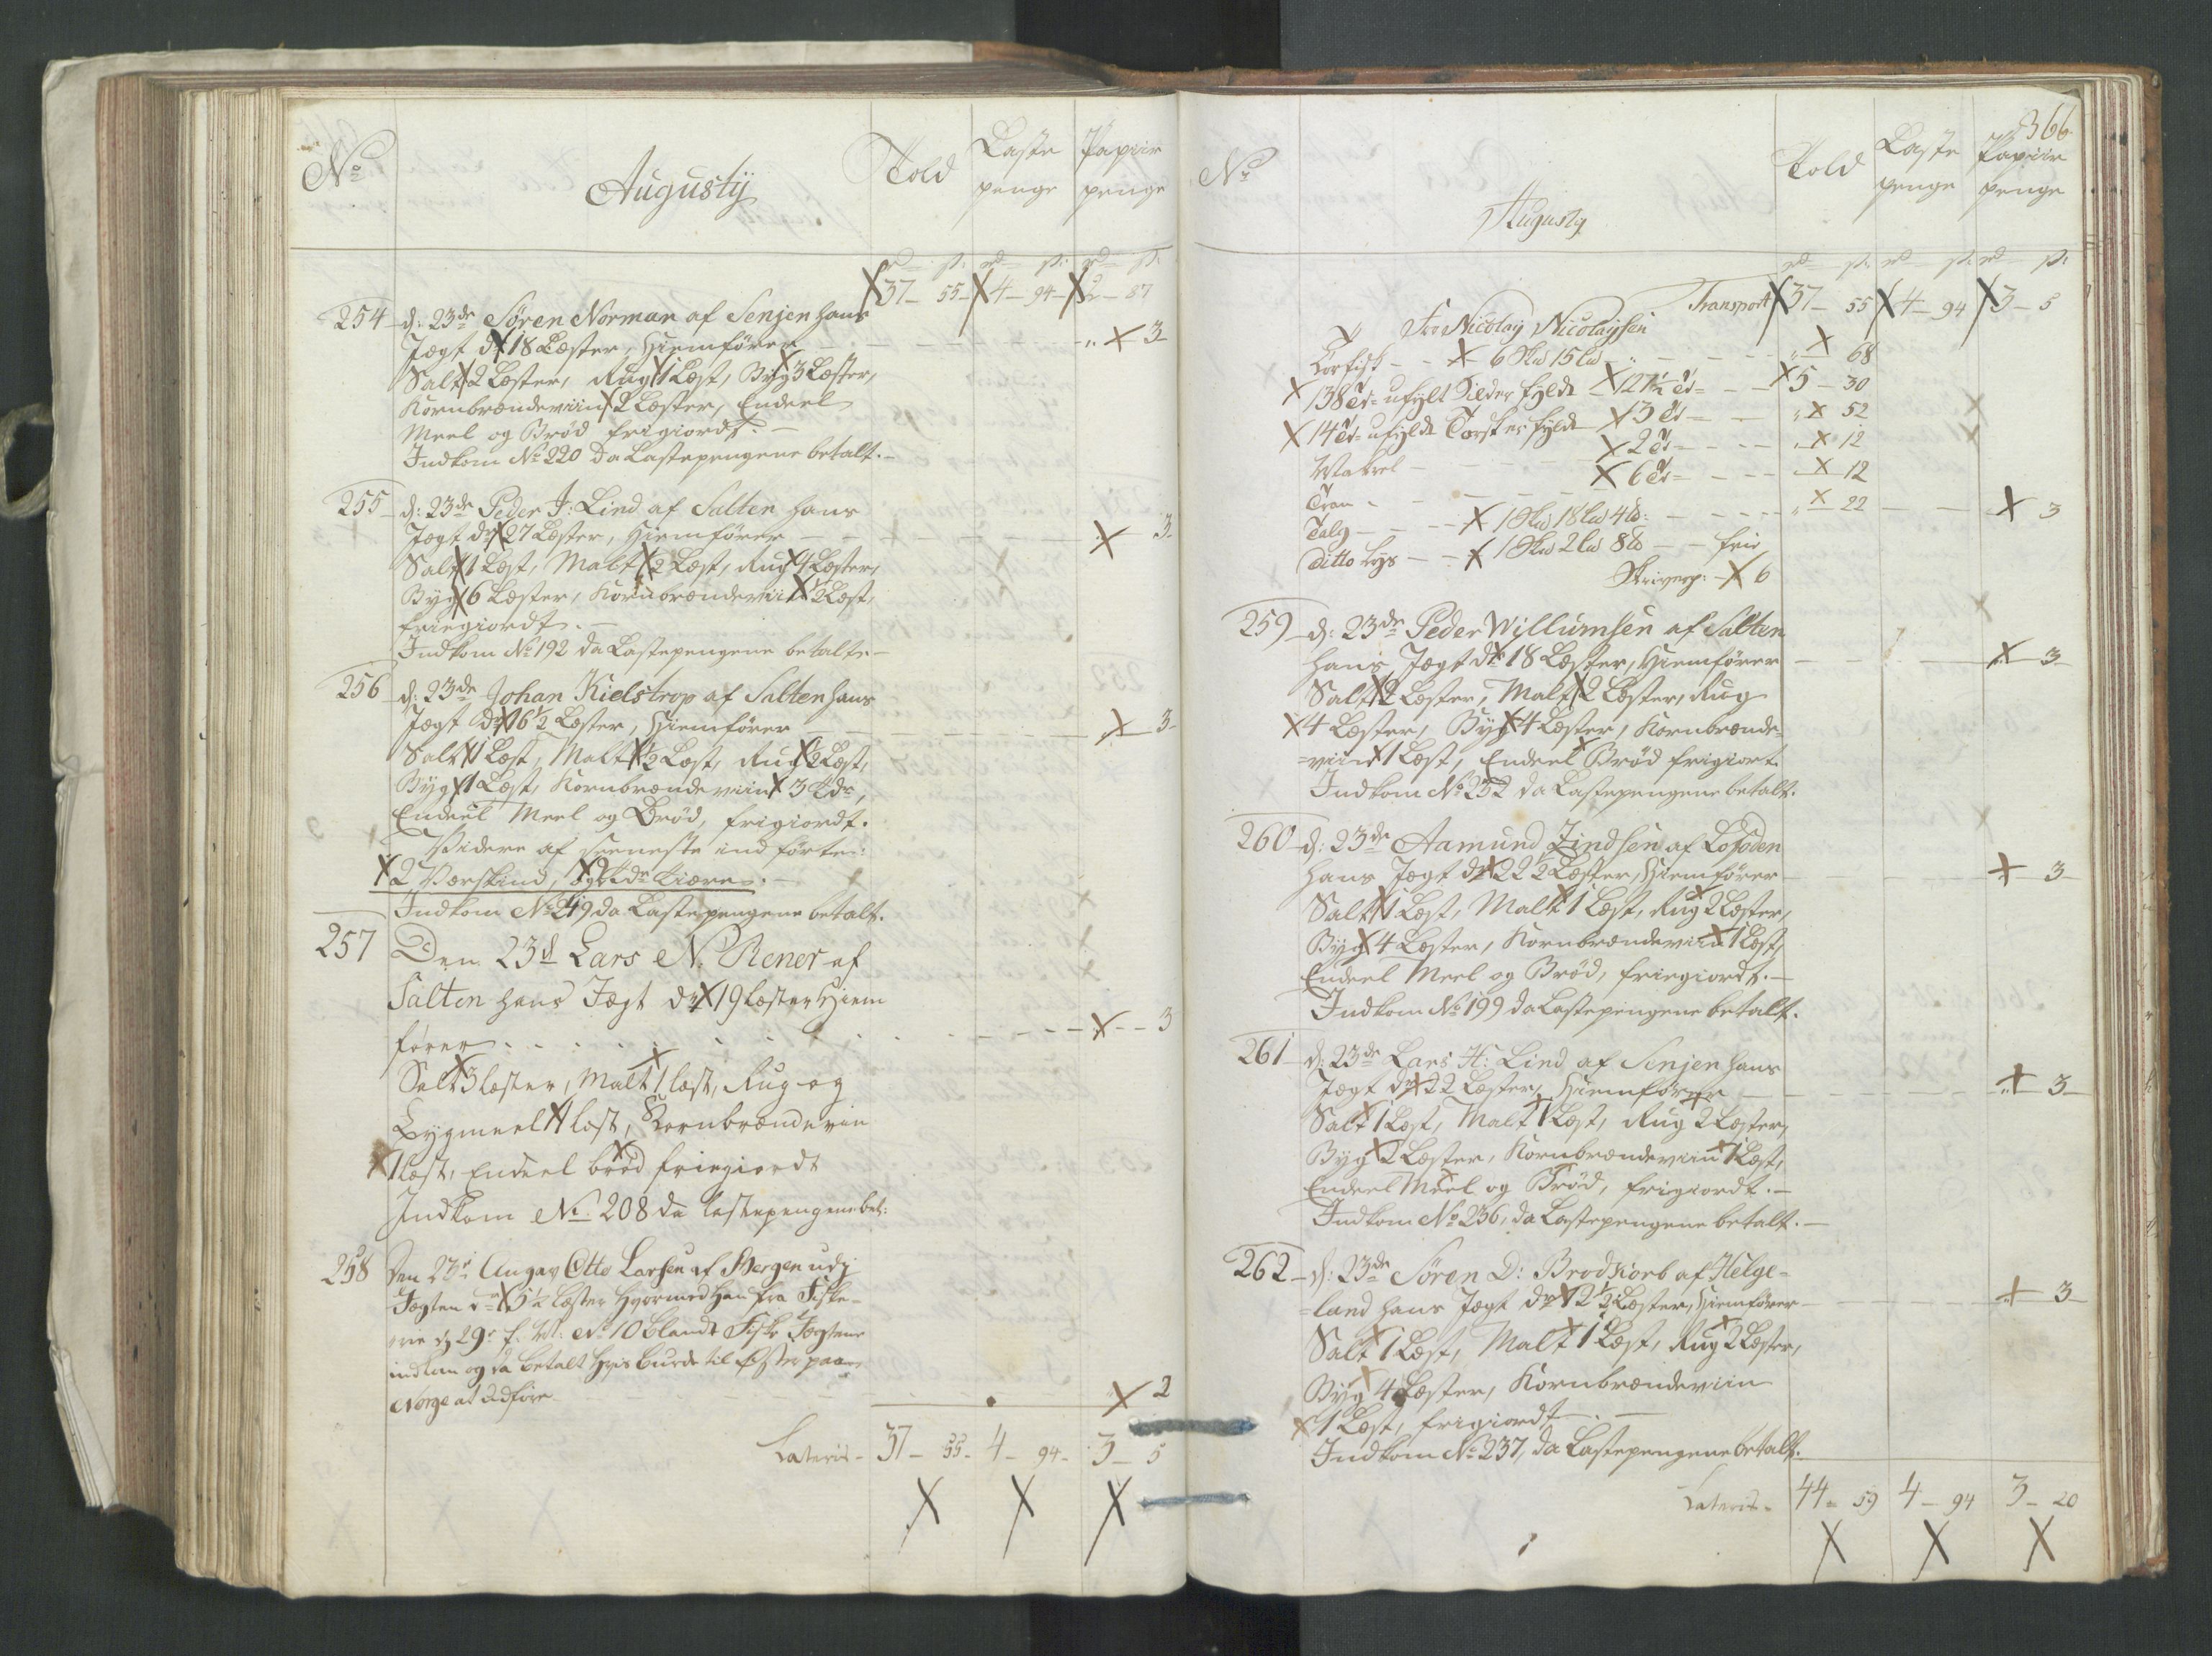 No
Augustij
Told
Laste
penge
Papiir
penge
rd s: rd s: rd s:
37 - 55 - 4 - 94 - 2 - 87
254 d: 23de Søren Norman af Senjen hans
Jægt dr 18 Læster, Hiemfører - - - 3
Salt 2 Læster, Rug 1 Læst, Byg 3 Læster,
Kornbrændeviin 2 Læster, Endeel
Meel og Brød frigiordt. -
Indkom No 220 da Lastepengene betalt. -
255 d: 23de Peder J: Lind af Salten hans
Jægt dr 27 Læster, Hiemfører - - - 3
Salt 1 Læst, Malt 2 Læst, Rug 4 Læster,
Byg 6 Læster, Kornbrændeviin 1/2 Læst,
friegiordt. -
Indkom No 192 da Lastepengene betalt. -
256 d: 23de Johan Kielstrop af Salten hans
Jægt dr 16 1/2 Læster, Hiemfører - - - 3
Salt 1 Læst, Malt 1/2 Læst, Rug 1/2 Læst,
Byg 1 Læst, Kornbrændeviin 3 Tdr,
Endeel Meel og Brød, frigiordt.
Videre af seeneste indførte:
2 Værskind, og Tdr Tiære. -
Indkom No 219 da Lastepengene betalt.
257 Den 23d Lars N: Rener af
Salten hans Jægt dr 19 læster Hiem
fører - - - 3
Salt 3 læster, Malt 1 læst, Rug og
Bygmeel 4 læst, Kornbrændeviin
1 læst, Endeel brød friegiordt
Indkom No 208 da lastepengene bet:
258 Den 23de Angav Otto Larsen af Bergen udj
Jægten dr 5 1/2 læster hvormed han fra Fiske-
rie d 29de f. M: No 10 blandt Fiske Jægterne
indkom og da betalt hvis burde til
Norge at udføre - - 2
Lateris - 37 - 55 - 4 - 94 - 3 - 5
366
No
Augusty
Told
Laste
penge
Papiir
penge
rd s: rd s: rd s:
Transport 37 - 55 4 - 94 3 - 5
Fro Nicolaÿ Nicolaysen
Tørfisk - - 6 Skd 15 Ld - - - 68
138 Td: ufylt Silder fyldt 127 1/2 Td - - 5 - 30
14 Td: ufyldt Torsk er fyldt 13 Td - - 52
Makrel - - 2 Td - - 12
Tran - - 6 Td - - 12
Talg - - 1 Skd 18 Ld 4 lb: - - 22 - - 3
Ditto Lys - - 1 Skd 2 Ld 8 lb - - frie
Skriverp: - 6
259 d: 23de Peder Willumsen af Salten
hans Jægt dr 18 Læster, Hiemfører - - 3
Salt 2 Læster, Malt 2 Læster, Rug
4 Læster, Byg 4 Læster, Kornbrænde-
=viin 1 Læst, Endeel Brød frigiort.
Indkom No 252 da Lastepengene betalt.
260 d: 23de Aamund Zindsen af Lofoden
hans Jægt dr 22 1/2 Læster, Hiemfører - - 3
Salt 1 Læst, Malt 1 Læst, Rug 2 Læster,
Byg 4 Læster, Kornbrændeviin 1 Læst,
Endeel Meel og Brød, friegiordt. -
Indkom No 199 da Lastepengene betalt.
261 d: 23de Lars H: Lind af Senjen hans
Jægt dr 22 Læster, Hiemfører - - 3
Salt 1 Læst, Malt 1 Læst, Rug 2 Læster,
Byg 2 Læster, Kornbrændeviin 1 Læst,
Endeel Meel og Brød, frigiordt. -
Indkom No 236, da Lastepengene betalt. -
262 d: 23de Søren D: Brodkorb af Helge-
=land hans Jægt dr 12 1/2 Læster, Hiemfører - - 3
Salt 1 Læst, Malt 1 Læst, Rug 2 Læster,
Byg 4 Læster, Kornbrændeviin
1 Læst, frigiordt. -
Indkom No 237, da Lastepengene betalt.
Lateris - 44 - 59 4 - 94 3 - 20